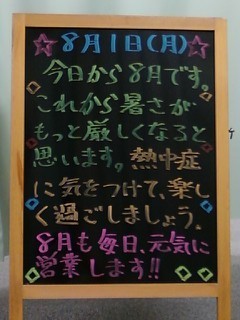 ☆8月1日(月)☆
今日から8月です。
これから暑さが
もっと厳しくなると
思います。熱中症
に気をつけて、楽し
く過ごしましょう。
8月も毎日、元気に
営業します!!